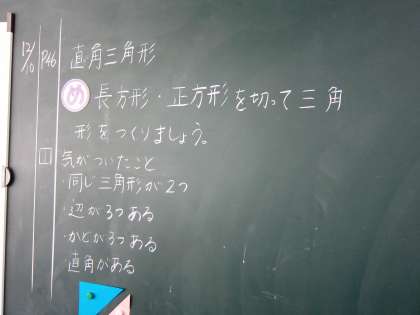 12/10 P46 直角三角形
め 長方形・正方形を切って三角
形をつくりましょう。
1 気がついたこと
・同じ三角形が2つ
・辺が3つある
・かどが3つある
・直角がある